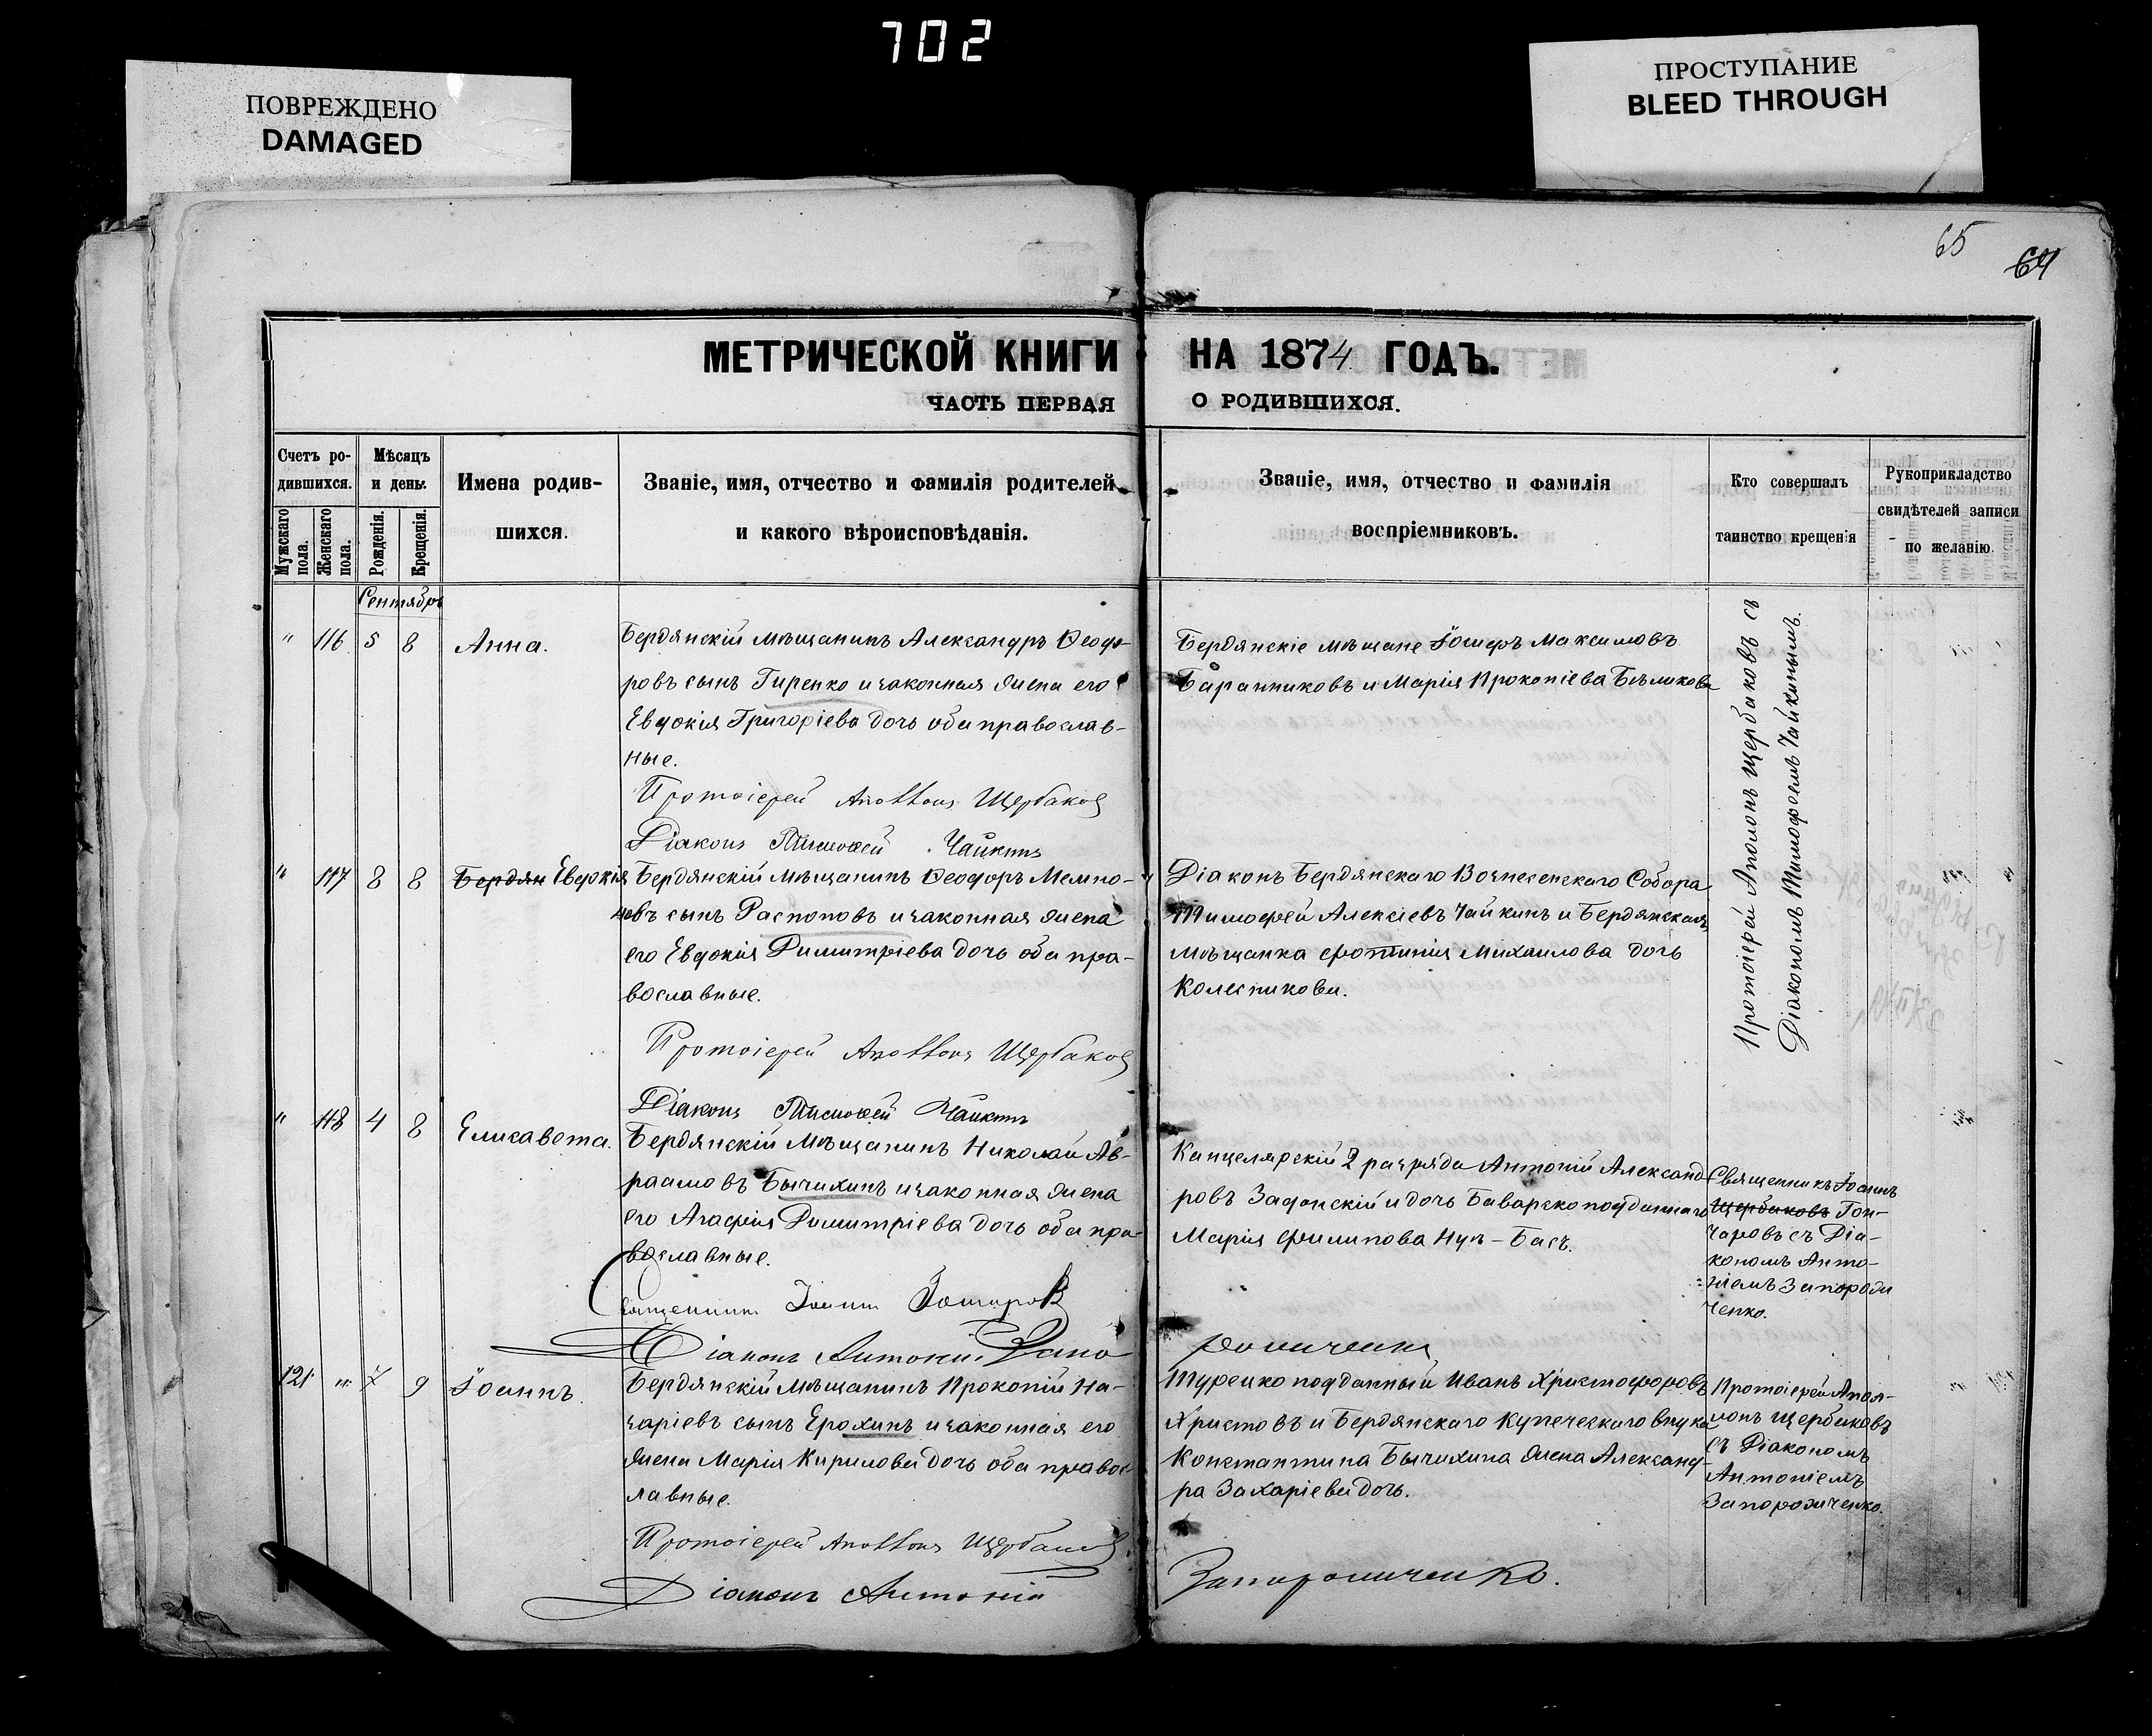 702
ПОВРЕЖДЕНО
DAMAGED
ПРОСТУПАНИЕ
BLEED THROUGH
65
64
МЕТРИЧЕСКОЙ КНИГИ НА 1874 ГОДЪ.
ЧАСТЬ ПЕРВАЯ О РОДИВШИХСЯ.
Счетъ ро-
дившихся.
Мужскаго пола.
Женскаго пола.
Мѣсяцъ
и день.
Рожденія.
Крещенія.
Имена родив-
шихся.
Званіе, имя, отчество и фамилія родителей
и какого вѣроисповѣданія.
Званіе, имя, отчество и фамилія
воспріемниковъ.
Кто совершалъ
таинство крещенія
Рукоприкладство
свидѣтелей записи
по желанію.
Сентябрь
" 116 5 8 Анна.
Бердянскій мѣщанинъ Александръ Ѳеодо-
ровъ сынъ Гиренко и законная жена его
Евдокія Григоріева дочь оба православ-
ные.
Протоіерей Аполлонъ Щербаковъ
Діаконъ Тимоѳей Чайкинъ
Бердянскіе мѣщане Іосифъ Максимовъ
Баранниковъ и Марія Прокопіева Бѣликова
Протоіерей Аполонъ Щербаковъ съ
Діакономъ Тимофеемъ Чайкинымъ.
" 117 8 8 Бердян Евдокія
Бердянскій Мѣщанинъ Ѳеодоръ
сынъ Распоповъ и законная жена
его Евдокія Димитріева дочь оба пра-
вославные.
Протоіерей Аполлонъ Щербаковъ
Діаконъ Тимоѳей Чайкинъ
Діаконъ Бердянскаго Вознесенскаго Собора
Тимофей Алексіевъ Чайкинъ и Бердянская
мѣщанка Фотинія Михаилова дочь
Колесникова.
" 118 4 8 Елисавета.
Бердянскій Мѣщанинъ Николай Ав-
раамовъ Бычихинъ и законная жена
его Агафія Димитріева дочь оба пра-
вославные.
Священникъ Іоаннъ Гончаровъ
Діаконъ Антоній Запо
рожченко
Канцелярскій 2 разряда Антоній Александ-
ровъ Задонскій и дочь Баварско подданнаго
Марія Филипова Нуп-Басъ.
Священникъ Іоаннъ
Щербаковъ Гон-
чаровъ съ Діа-
кономъ Анто-
ніемъ Запорож
ченко.
121 " 7 9 Іоаннъ.
Бердянскій Мѣщанинъ Прокопій На-
заріевъ сынъ Ерохинъ и законная его
жена Марія Кирилова дочь оба правос-
лавные.
Протоіерей Аполлонъ Щербаковъ
Діаконъ Антоній
Запорожченко.
Турецко подданный Иванъ Христофоровъ
Христовъ и Бердянскаго Купеческаго внука
Константина Бычихина жена Александ-
ра Захаріева дочь.
Протоіерей Апол-
лонъ Щербаковъ
съ Діакономъ
Антоніемъ
Запорожченко.